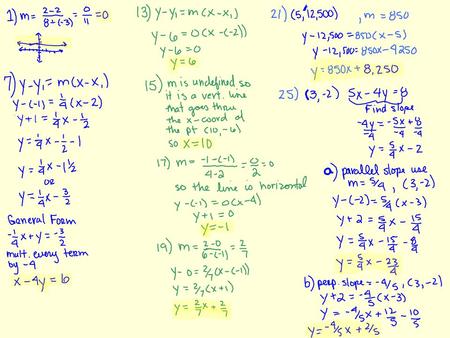 1) m = 2-2 / 8+(-3) = 0/11 = 0
7) y-y₁ = m(x-x₁)
y-(-1) = 1/4(x-2)
y+1 = 1/4x - 1/2
y = 1/4x - 1/2 - 1
y = 1/4x - 1 1/2
or
y = 1/4x - 3/2
General Form
-1/4x + y = -3/2
mult. every term
by -4
x - 4y = 6
13) y-y₁ = m(x-x₁)
y-6 = 0(x-(-2))
y-6 = 0
y = 6
15) m is undefined so
it is a vert. line
that goes thru
the x-coord of
the pt (10,-6)
so x = 10
17) m = -1-(-1) / 4-2 = 0/2 = 0
so the line is horizontal
y-(-1) = 0(x-4)
y+1 = 0
y = -1
19) m = 2-0 / 6-(-1) = 2/7
y-0 = 2/7(x-(-1))
y = 2/7(x+1)
y = 2/7x + 2/7
21) (5, 12,500) , m = 850
y-12,500 = 850(x-5)
y-12,500 = 850x - 4250
y = 850x + 8,250
25) (3,-2) 5x-4y = 8
Find slope
-4y/-4 = -5x/-4 + 8/-4
y = 5/4x - 2
a) parallel slope use
m = 5/4, (3,-2)
y-(-2) = 5/4(x-3)
y+2 = 5/4x - 15/4
y = 5/4x - 15/4 - 8/4
y = 5/4x - 23/4
b) perp. slope = -4/5, (3,-2)
y+2 = -4/5(x-3)
y = -4/5x + 12/5 - 10/5
y = -4/5x + 2/5